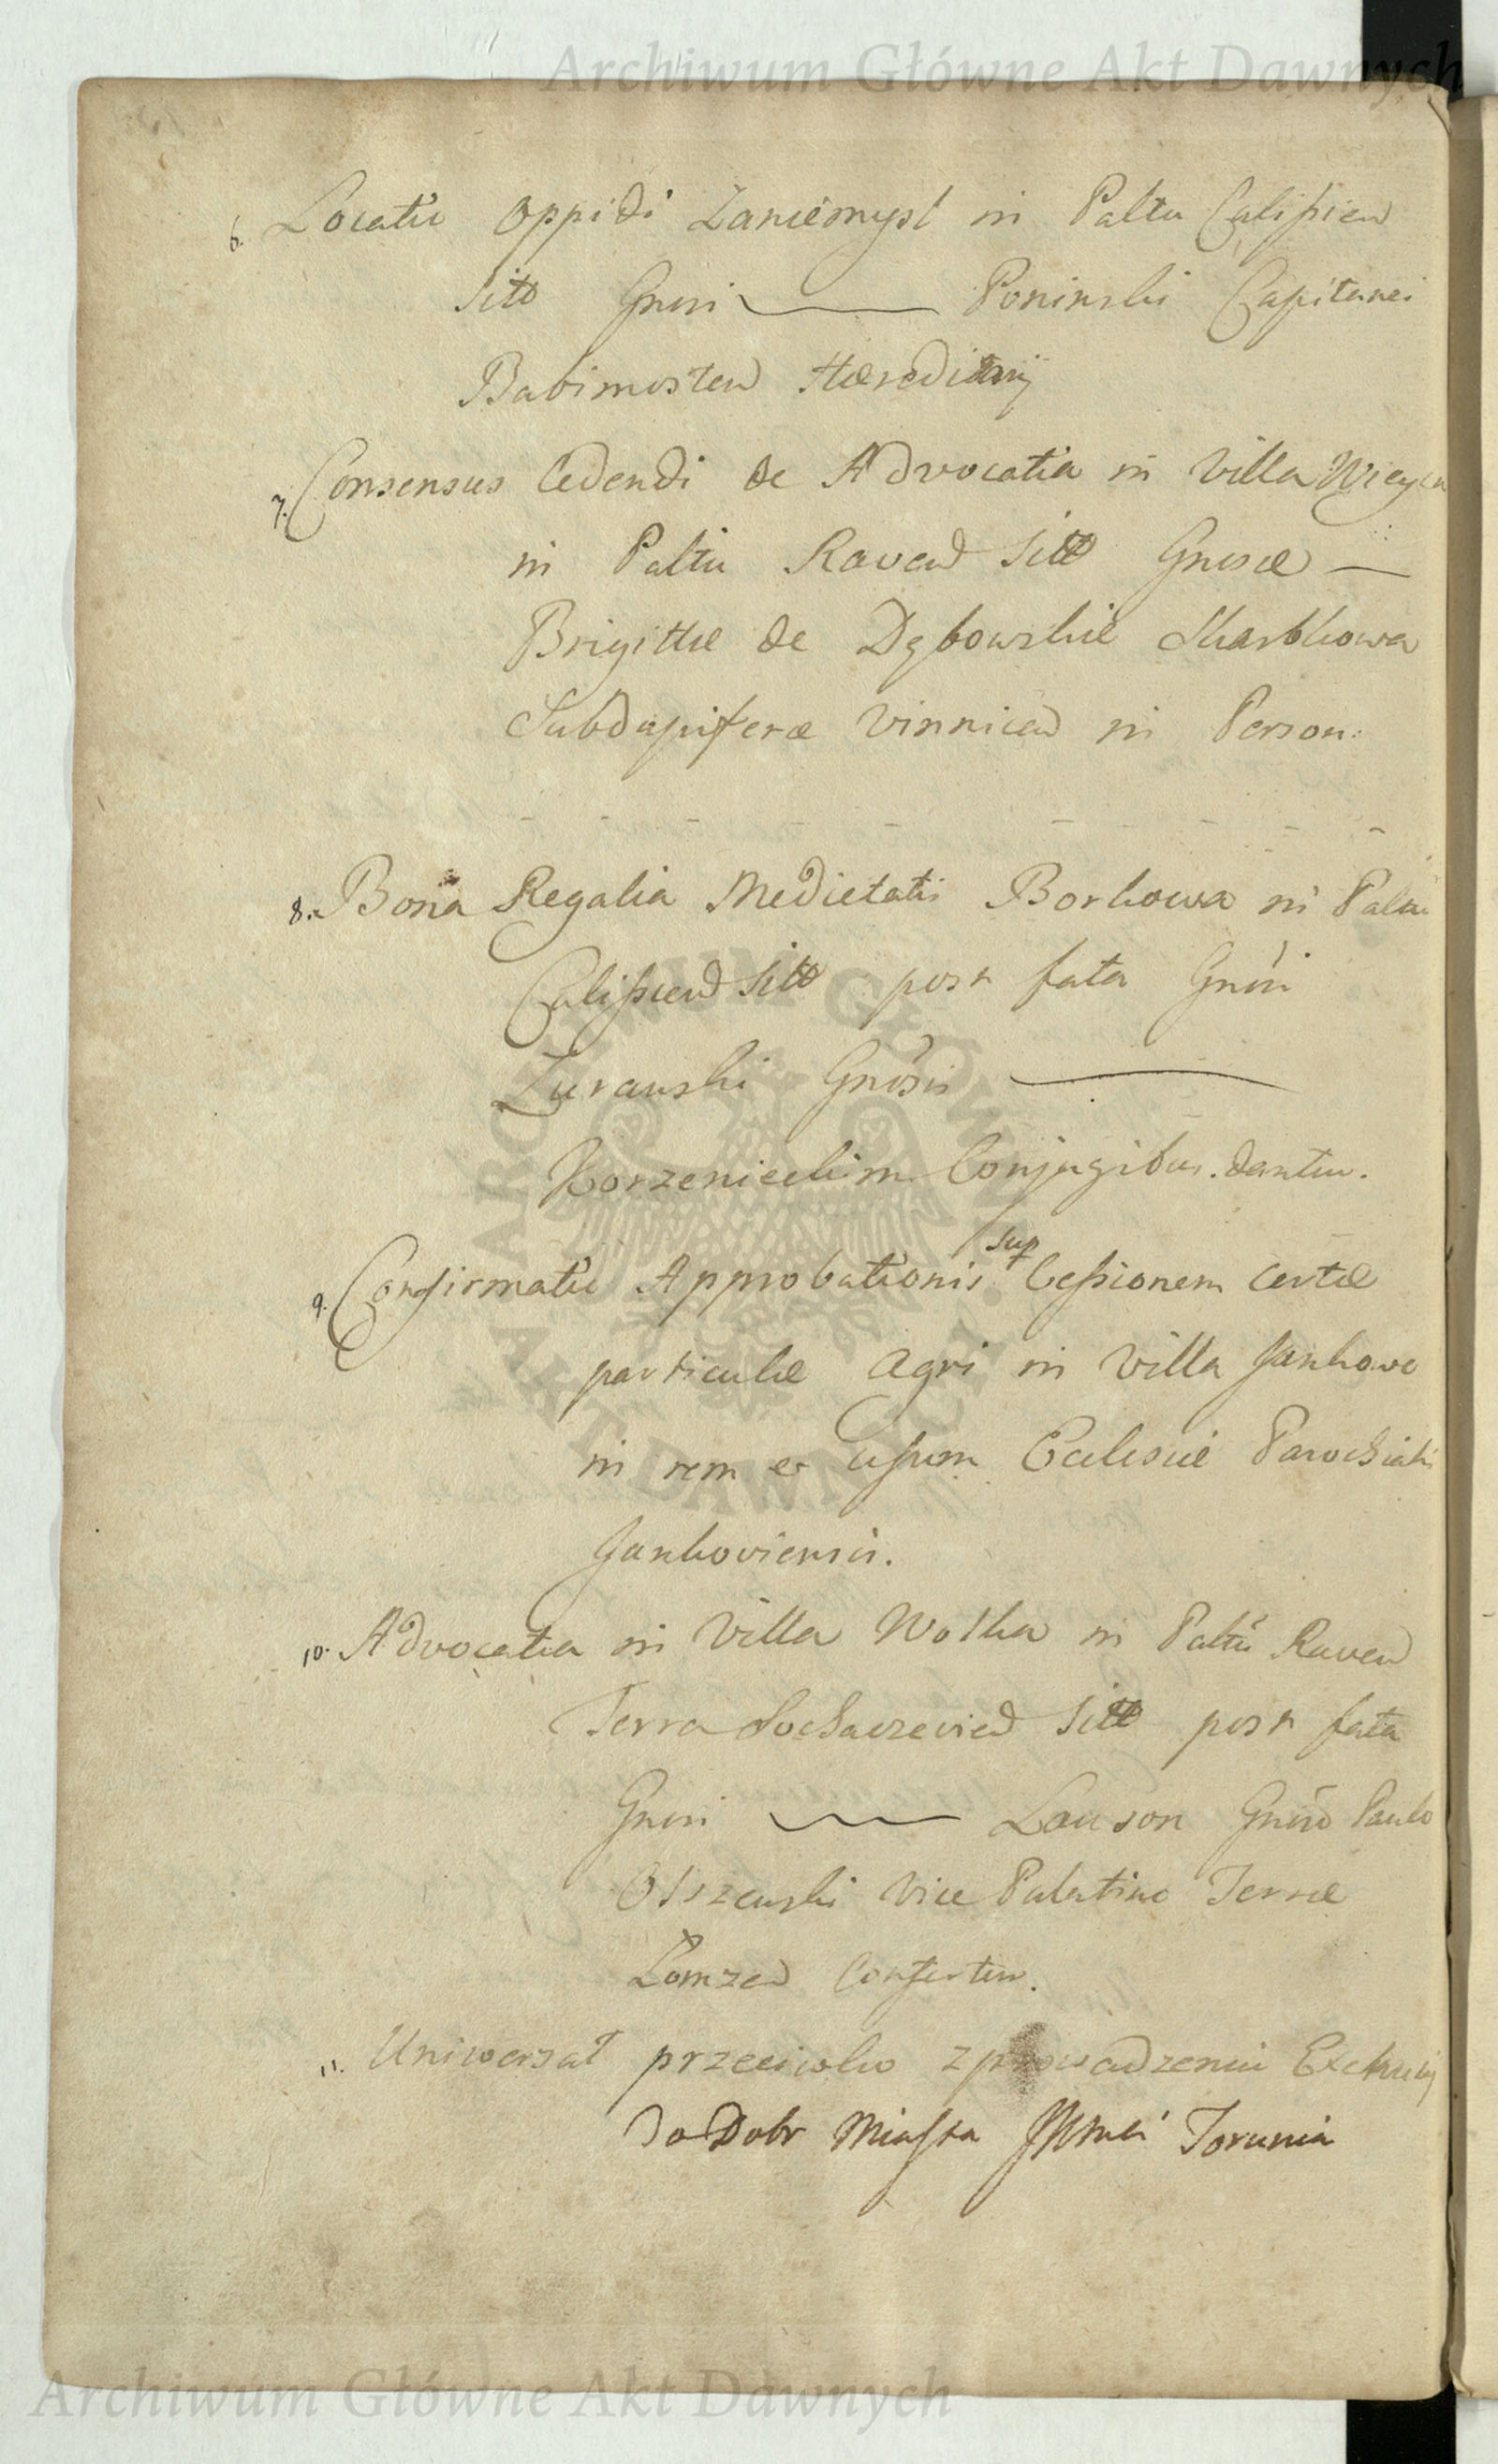 Archiwum Główne Akt Dawnych
6. Locatio Oppidi Zaniemysl in Paltu Calissien
Sitto Gnosi Poninski Capitanei
Babimosten Hæreditarij
7. Consensus Cedendi de Advocatia in Villa
in Paltu Raven Sitto Gnosæ
Brigittæ de Dębowskie Skarbkowa
Subdapiferæ Vinnicen in Person:
8. Bona Regalia Medietatis Borkowa in Paltu
Calissien Sitto post fata Gnosi
Zurawski Gnosis
Korzenieckim Conjugibus dantur.
9. Confirmatio Approbationis sup Cessionem certæ
particulæ Agri in Villa Jankowo
in rem et usum Eclesiæ Parochialis
Jankoviensis.
10. Advocatia in Villa Wolka in Paltu Raven
Terra Sochaczevien Sitto post fata
Gnosi Lauson Gnoso Paulo
Olszewski Vice Palatino Terræ
Łomzen Confertur.
11. Uniwersał przeciwko zprowadzeniu Exekucij
Do Dobr Miasta Torunia
ARCHIWUM GŁÓWNE AKT DAWNYCH
Archiwum Główne Akt Dawnych